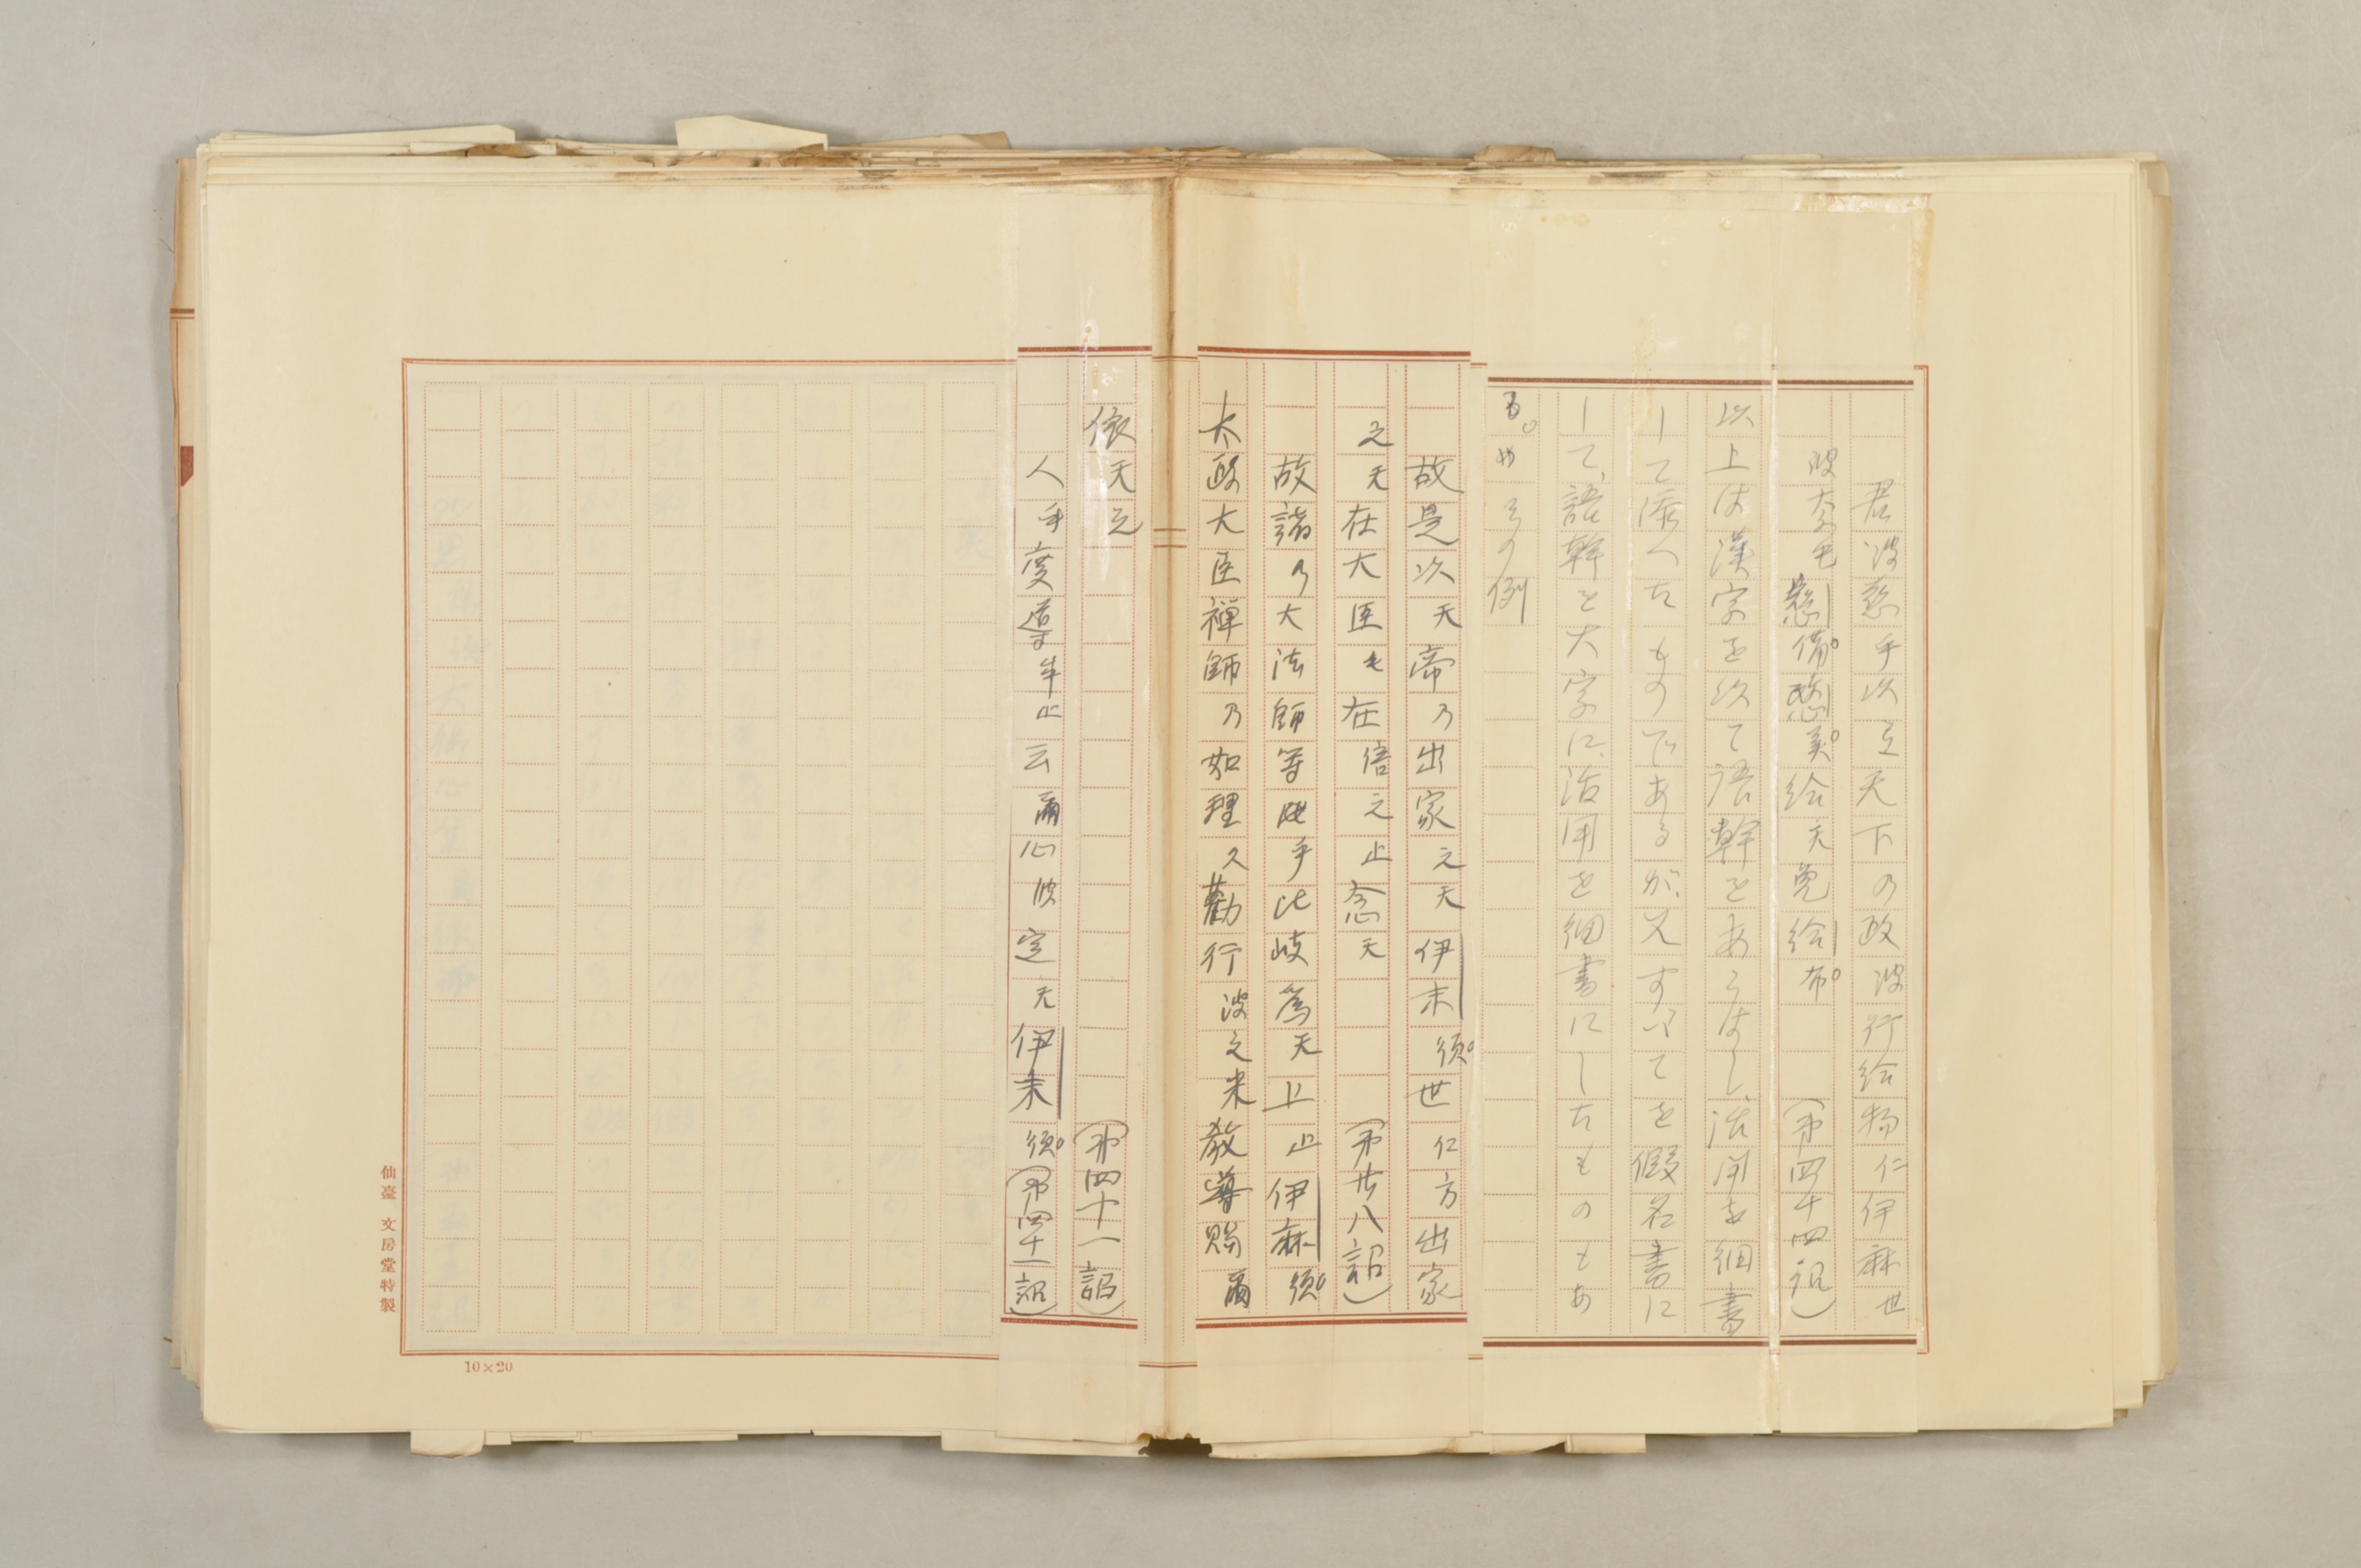 君波慈乎以互天下乃政波行給物仁伊麻世
波奈毛慈備愍美給天免給布（第四十四詔）
以上は漢字を以て語幹をあらはし、活用を細書
して添へたものであるが、又すべてを假名書に
して、語幹を大字に、活用を細書にしたものもあ
る。その例
故是以天帝乃出家之天伊末須世仁方出家
之天在大臣毛在倍之止念天（第廿八詔）
故諸乃大法師等此乎比岐為天上止伊麻須
太政大臣禅師乃如理久勸行波之米教導賜爾
依天之（第四十一詔）
人乎愛導牟止云爾心波定天伊末須（第四十一詔）
仙臺 文房堂特製
10×20